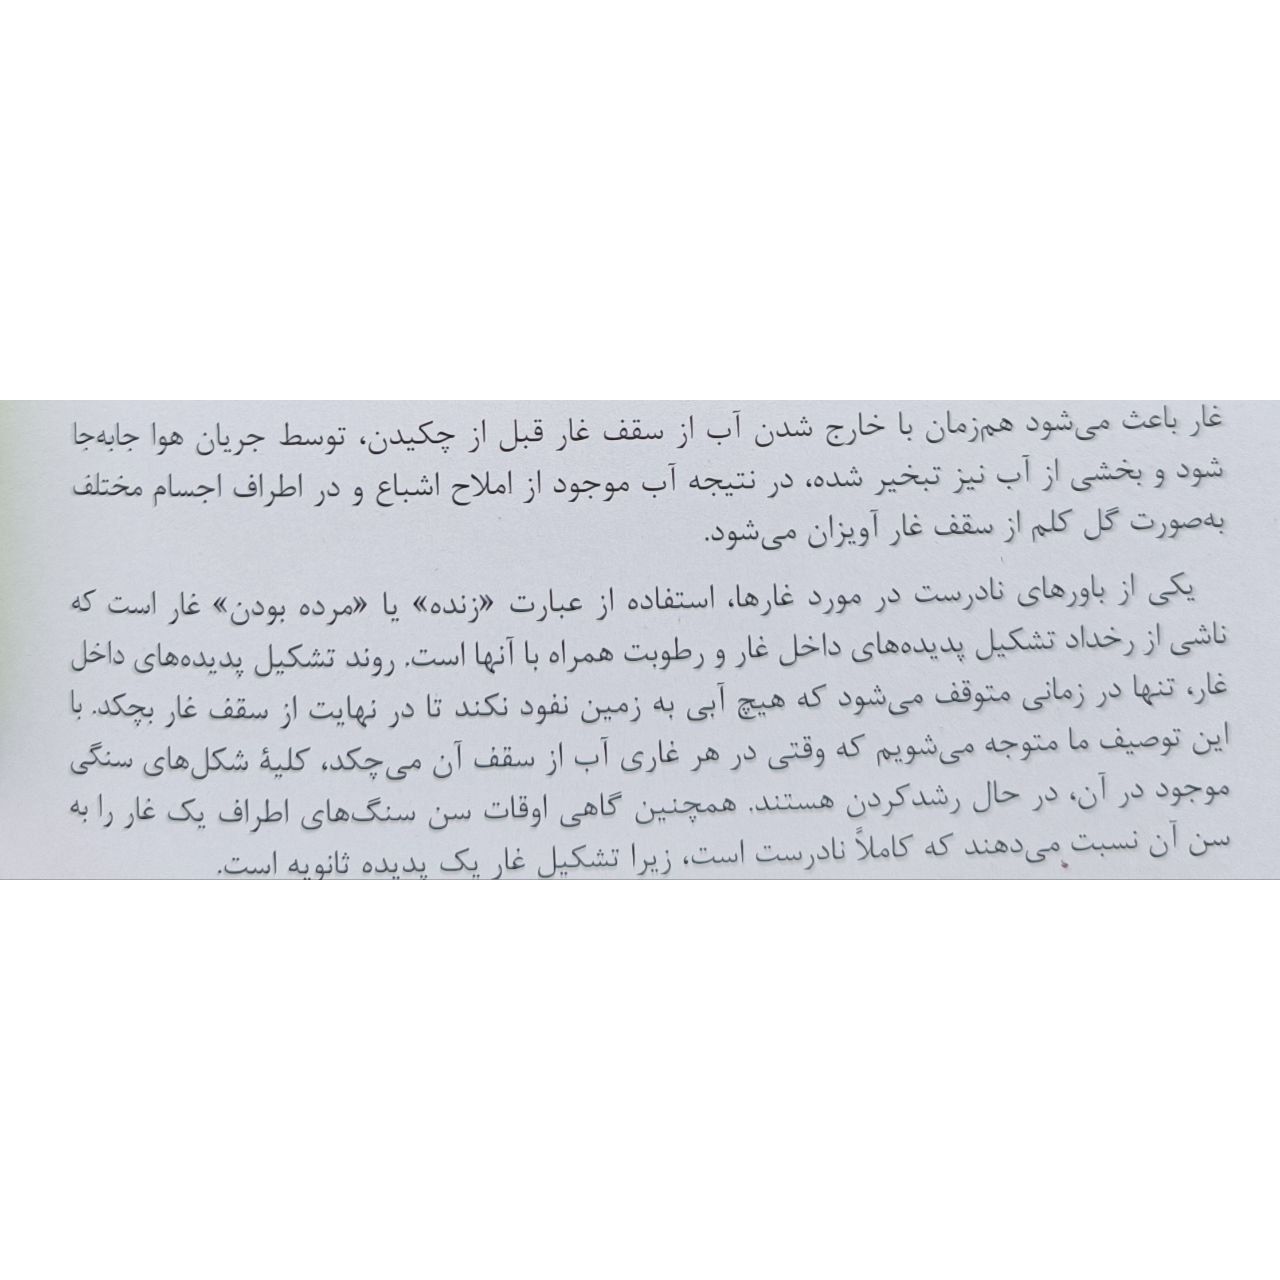 غار باعث می‌شود هم‌زمان با خارج شدن آب از سقف غار قبل از چکیدن، توسط جریان هوا جابه‌جا
شود و بخشی از آب نیز تبخیر شده، در نتیجه آب موجود از املاح اشباع و در اطراف اجسام مختلف
به‌صورت گل کلم از سقف غار آویزان می‌شود.
یکی از باورهای نادرست در مورد غارها، استفاده از عبارت «زنده» یا «مرده بودن» غار است که
ناشی از رخداد تشکیل پدیده‌های داخل غار و رطوبت همراه با آنها است. روند تشکیل پدیده‌های داخل
غار، تنها در زمانی متوقف می‌شود که هیچ آبی به زمین نفود نکند تا در نهایت از سقف غار بچکد. با
این توصیف ما متوجه می‌شویم که وقتی در هر غاری آب از سقف آن می‌چکد، کلیهٔ شکل‌های سنگی
موجود در آن، در حال رشدکردن هستند. همچنین گاهی اوقات سن سنگ‌های اطراف یک غار را به
سن آن نسبت می‌دهند که کاملاً نادرست است، زیرا تشکیل غار یک پدیده ثانویه است.